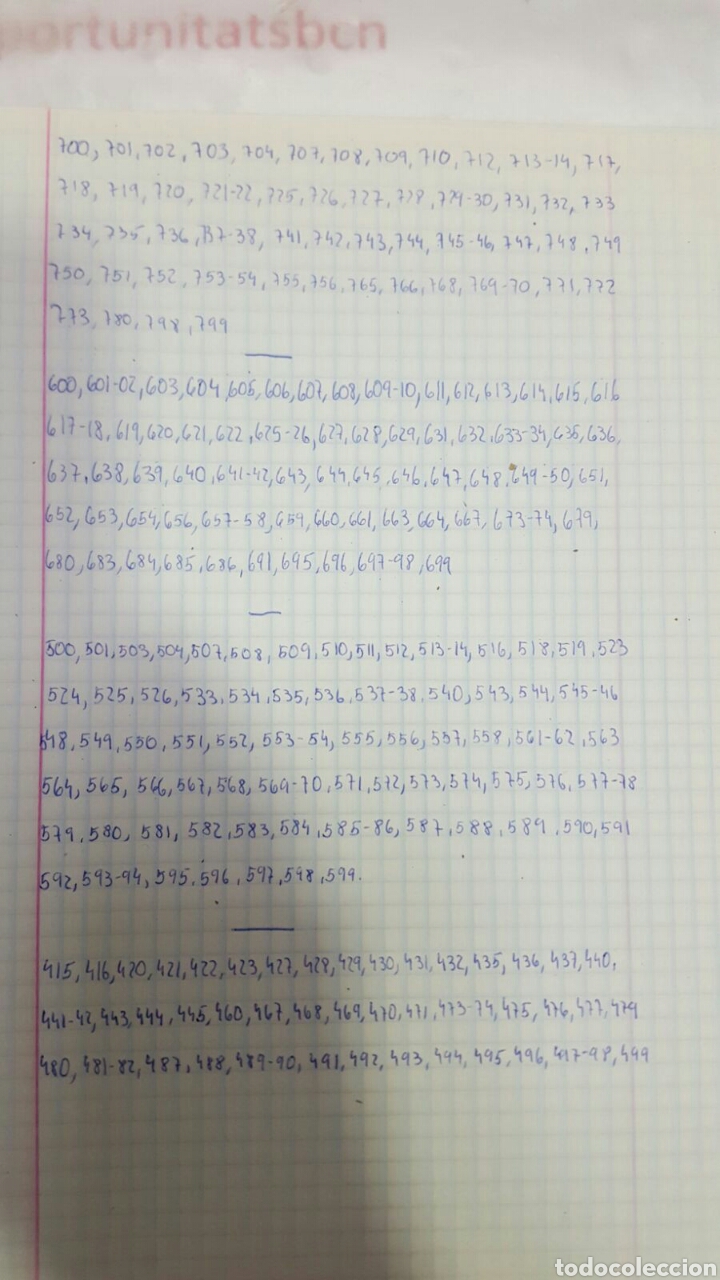 portunitatsbcn
700, 701, 702, 703, 704, 707, 708, 709, 710, 712, 713-14, 717,
718, 719, 720, 721-22, 725, 726, 727, 728, 729-30, 731, 732, 733
734, 735, 736, 737-38, 741, 742, 743, 744, 745-46, 747, 748, 749
750, 751, 752, 753-54, 755, 756, 765, 766, 768, 769-70, 771, 772
773, 780, 798, 799
600, 601-02, 603, 604, 605, 606, 607, 608, 609-10, 611, 612, 613, 614, 615, 616
617-18, 619, 620, 621, 622, 625-26, 627, 628, 629, 631, 632, 633-34, 635, 636,
637, 638, 639, 640, 641-42, 643, 644, 645, 646, 647, 648, 649-50, 651,
652, 653, 654, 656, 657-58, 659, 660, 661, 663, 664, 667, 673-74, 679,
680, 683, 684, 685, 686, 691, 695, 696, 697-98, 699
500, 501, 503, 504, 507, 508, 509, 510, 511, 512, 513-14, 516, 518, 519, 523
524, 525, 526, 533, 534, 535, 536, 537-38, 540, 543, 544, 545-46
548, 549, 550, 551, 552, 553-54, 555, 556, 557, 558, 561-62, 563
564, 565, 566, 567, 568, 569-70, 571, 572, 573, 574, 575, 576, 577-78
579, 580, 581, 582, 583, 584, 585-86, 587, 588, 589, 590, 591
592, 593-94, 595, 596, 597, 598, 599.
415, 416, 420, 421, 422, 423, 427, 428, 429, 430, 431, 432, 435, 436, 437, 440,
441-42, 443, 444, 445, 460, 467, 468, 469, 470, 471, 473-74, 475, 476, 477, 479
480, 481-82, 487, 488, 489-90, 491, 492, 493, 494, 495, 496, 497-98, 499
todocoleccion